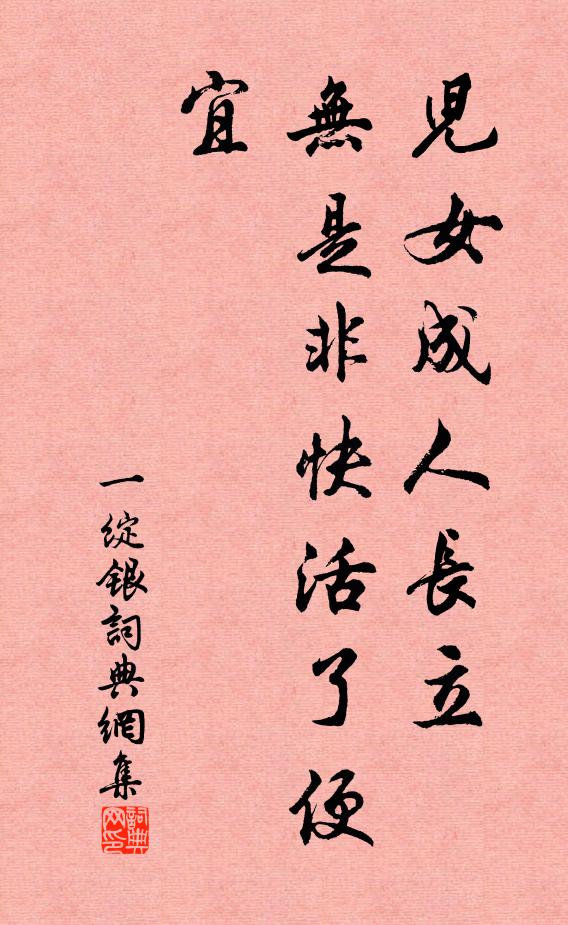 兒女成人長立
無是非快活了便
宜
一綻銀詞典網集
詞典
网印